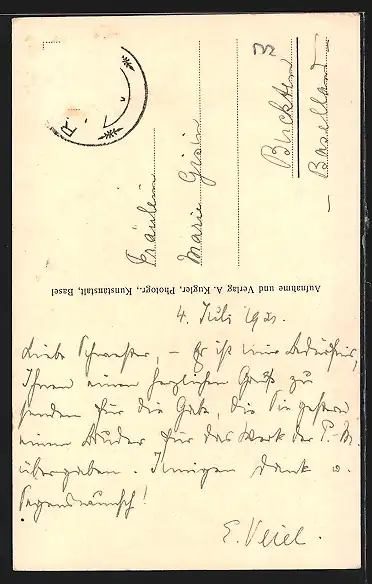 Fräulein
Marie Gysin
Buckten
Baselland
Aufnahme und Verlag A. Kugler, Photogr., Kunstanstalt, Basel
4. Juli 1921.
Liebe Schwester, – Es ist mir Bedürfnis,
Ihnen einen herzlichen Gruß zu
senden für die Gabe, die Sie gestern
einem Bruder für das Werk der P.-M.
übergaben. Innigen Dank u.
Segenswunsch!
E. Veiel.